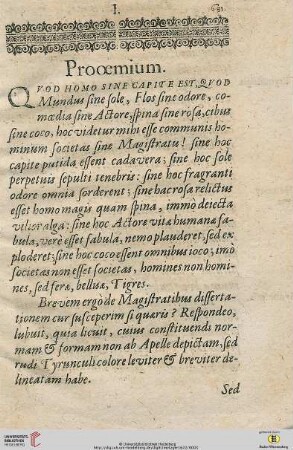 I.
Prooemium.
QVOD HOMO SINE CAPITE EST, QVOD
Mundus sine sole, Flos sine odore, co-
mœdia sine Actore, spina sine rosa, cibus
sine coco, hoc videtur mihi esse communis ho-
minum societas sine Magistratu! sine hoc
capite putida essent cadavera; sine hoc sole
perpetuis sepulti tenebris: sine hoc fragranti
odore omnia sorderent; sine hac rosa relictus
esset homo magis quam spina, immò detecta
vilior alga: sine hoc Actore vita humana fa-
bula, verè esset fabula, nemo plauderet, sed ex-
ploderet; sine hoc coco essent omnibus ioco; imò
societas non esset societas, homines non homi-
nes, sed feræ, belluæ, Tigres.
Brevem ergò de Magistratibus disserta-
tionem cur susceperim si quæris? Respondeo,
lubuit, quia licuit, cuius constituendi nor-
mam & formam non ab Apelle depictam, sed
rudi Tyrunculi colore leviter & breviter de-
lineatam habe.
Sed
UNIVERSITÄTS-
BIBLIOTHEK
HEIDELBERG
© Universitätsbibliothek Heidelberg
Baden-Württemberg